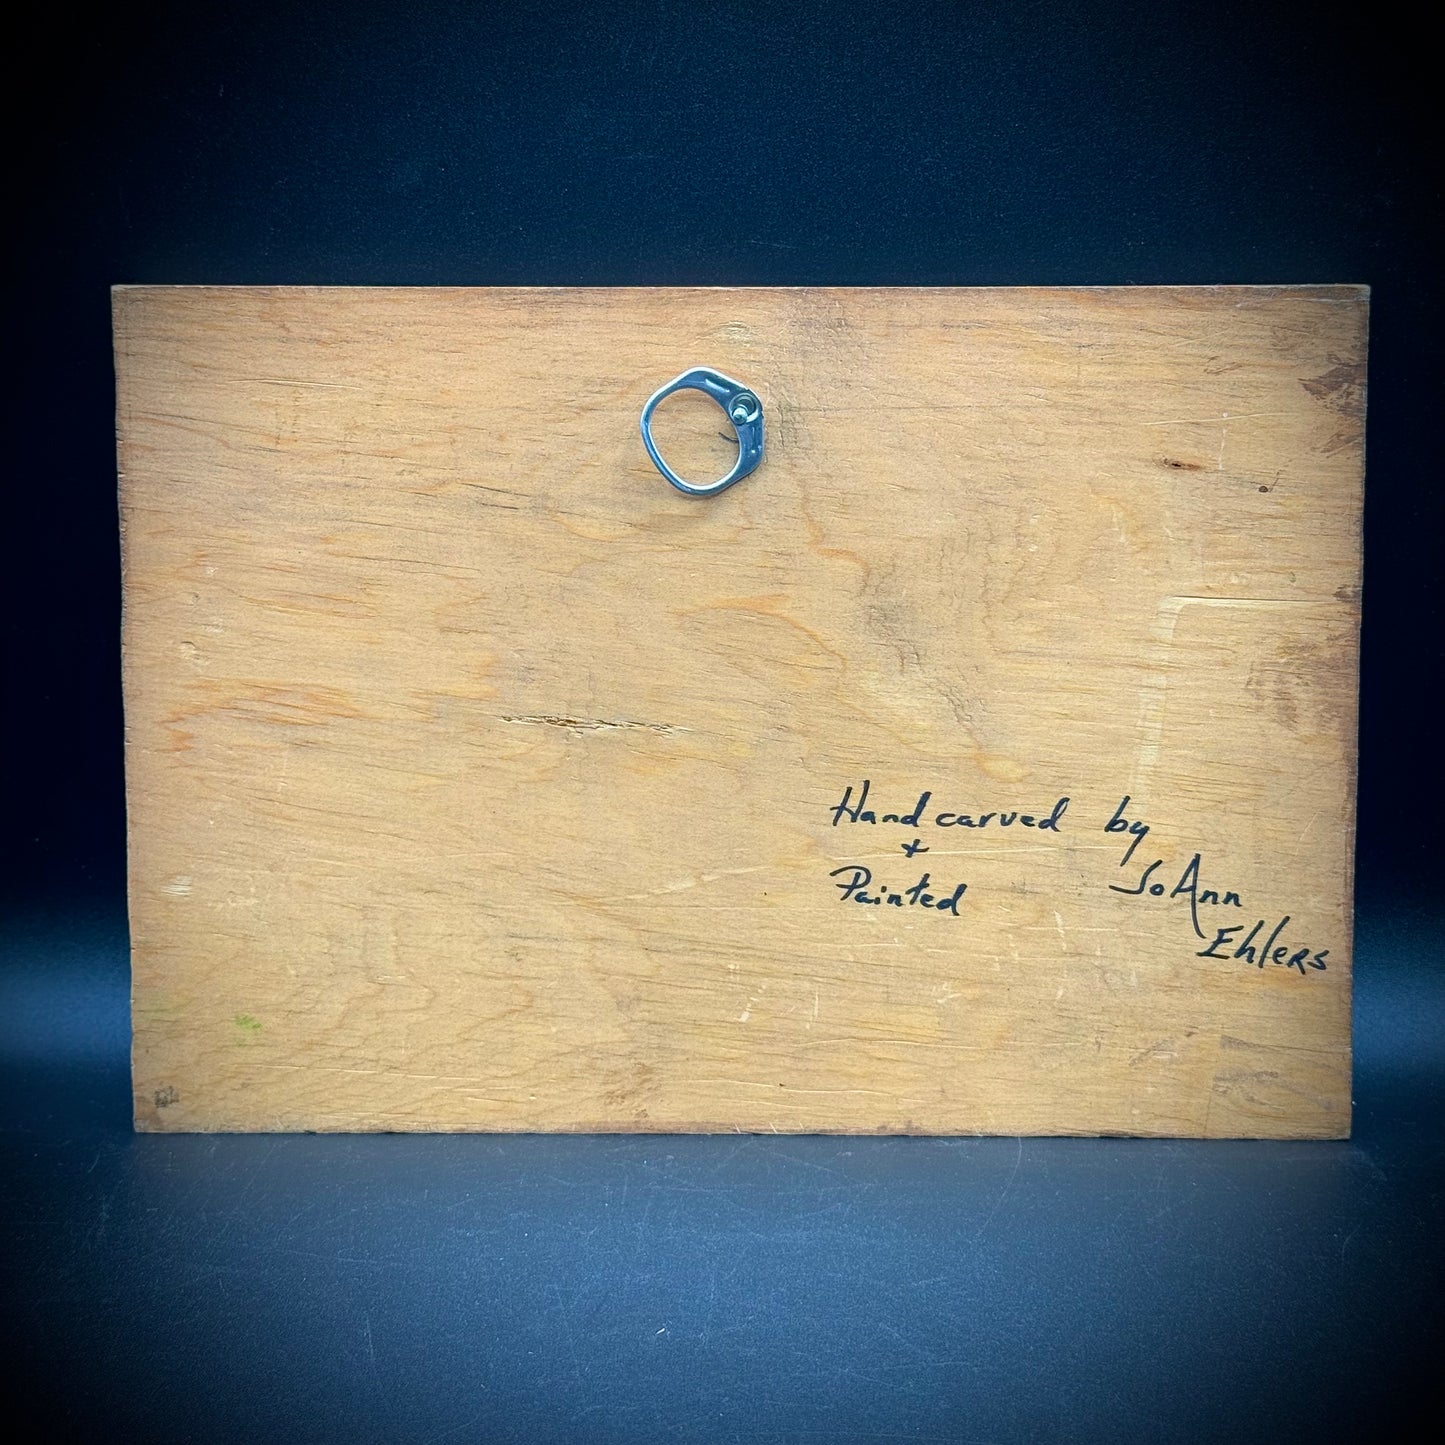 Hand carved by
+
Painted
JoAnn
Ehlers